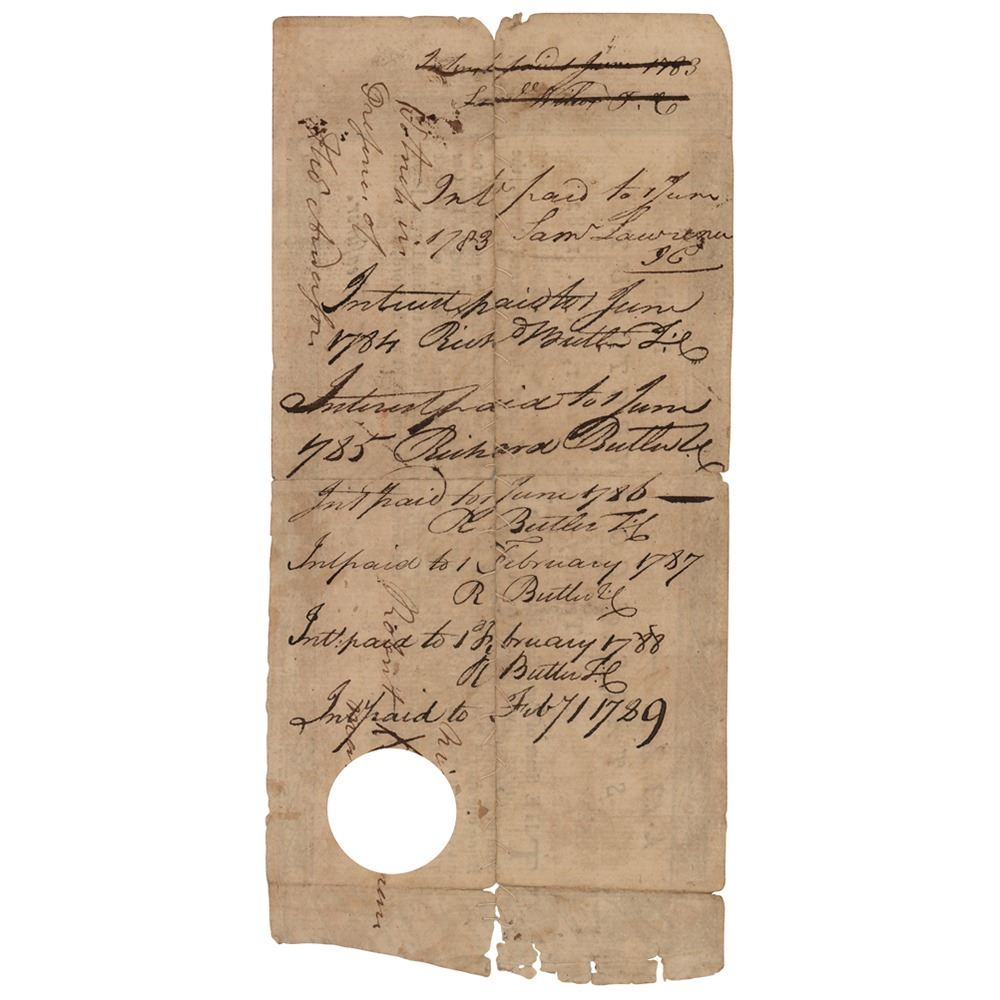 Interest paid 1 June 1783
Int.t paid to 1 June
1783 Sam.l Lawrence
JC
Interest paid to 1 June
1784 Rich.d Butler T:C
Interest paid to 1 June
1785 Richard Butler T:C
Int.t paid to 1 June 1786
R Butler T:C
Int paid to 1 February 1787
R Butler T:C
Int.t paid to 1.st February 1788
R Butler T:C
Int.t paid to Feb.y 1 1789
in
Presence of
Tho.s Anderson
Robert
his
X